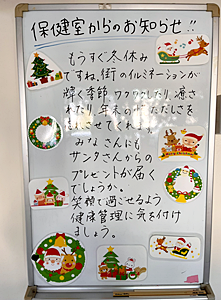 保健室からのお知らせ!!
もうすぐ冬休み
ですね。街のイルミネーションが
輝く季節 ワクワクしたり、癒さ
れたり 年末の ただしさを
させてくれます。
みなさんにも
サンタさんからの
プレゼントが届く
でしょうか。
笑顔で過ごせるよう
健康管理に気を付け
ましょう。